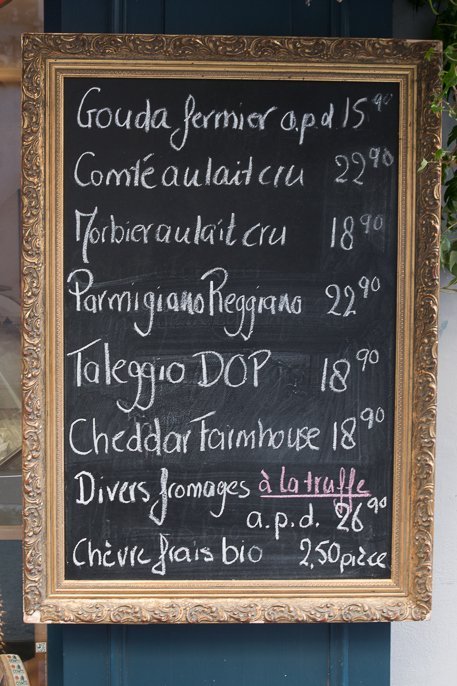 Gouda fermier a.p.d 15⁹⁰
Comté au lait cru 22⁹⁰
Morbier au lait cru 18⁹⁰
Parmigiano Reggiano 22⁹⁰
Taleggio DOP 18⁹⁰
Cheddar Farmhouse 18⁹⁰
Divers fromages à la truffe
a.p.d. 26⁹⁰
Chèvre frais bio 2,50 pièce